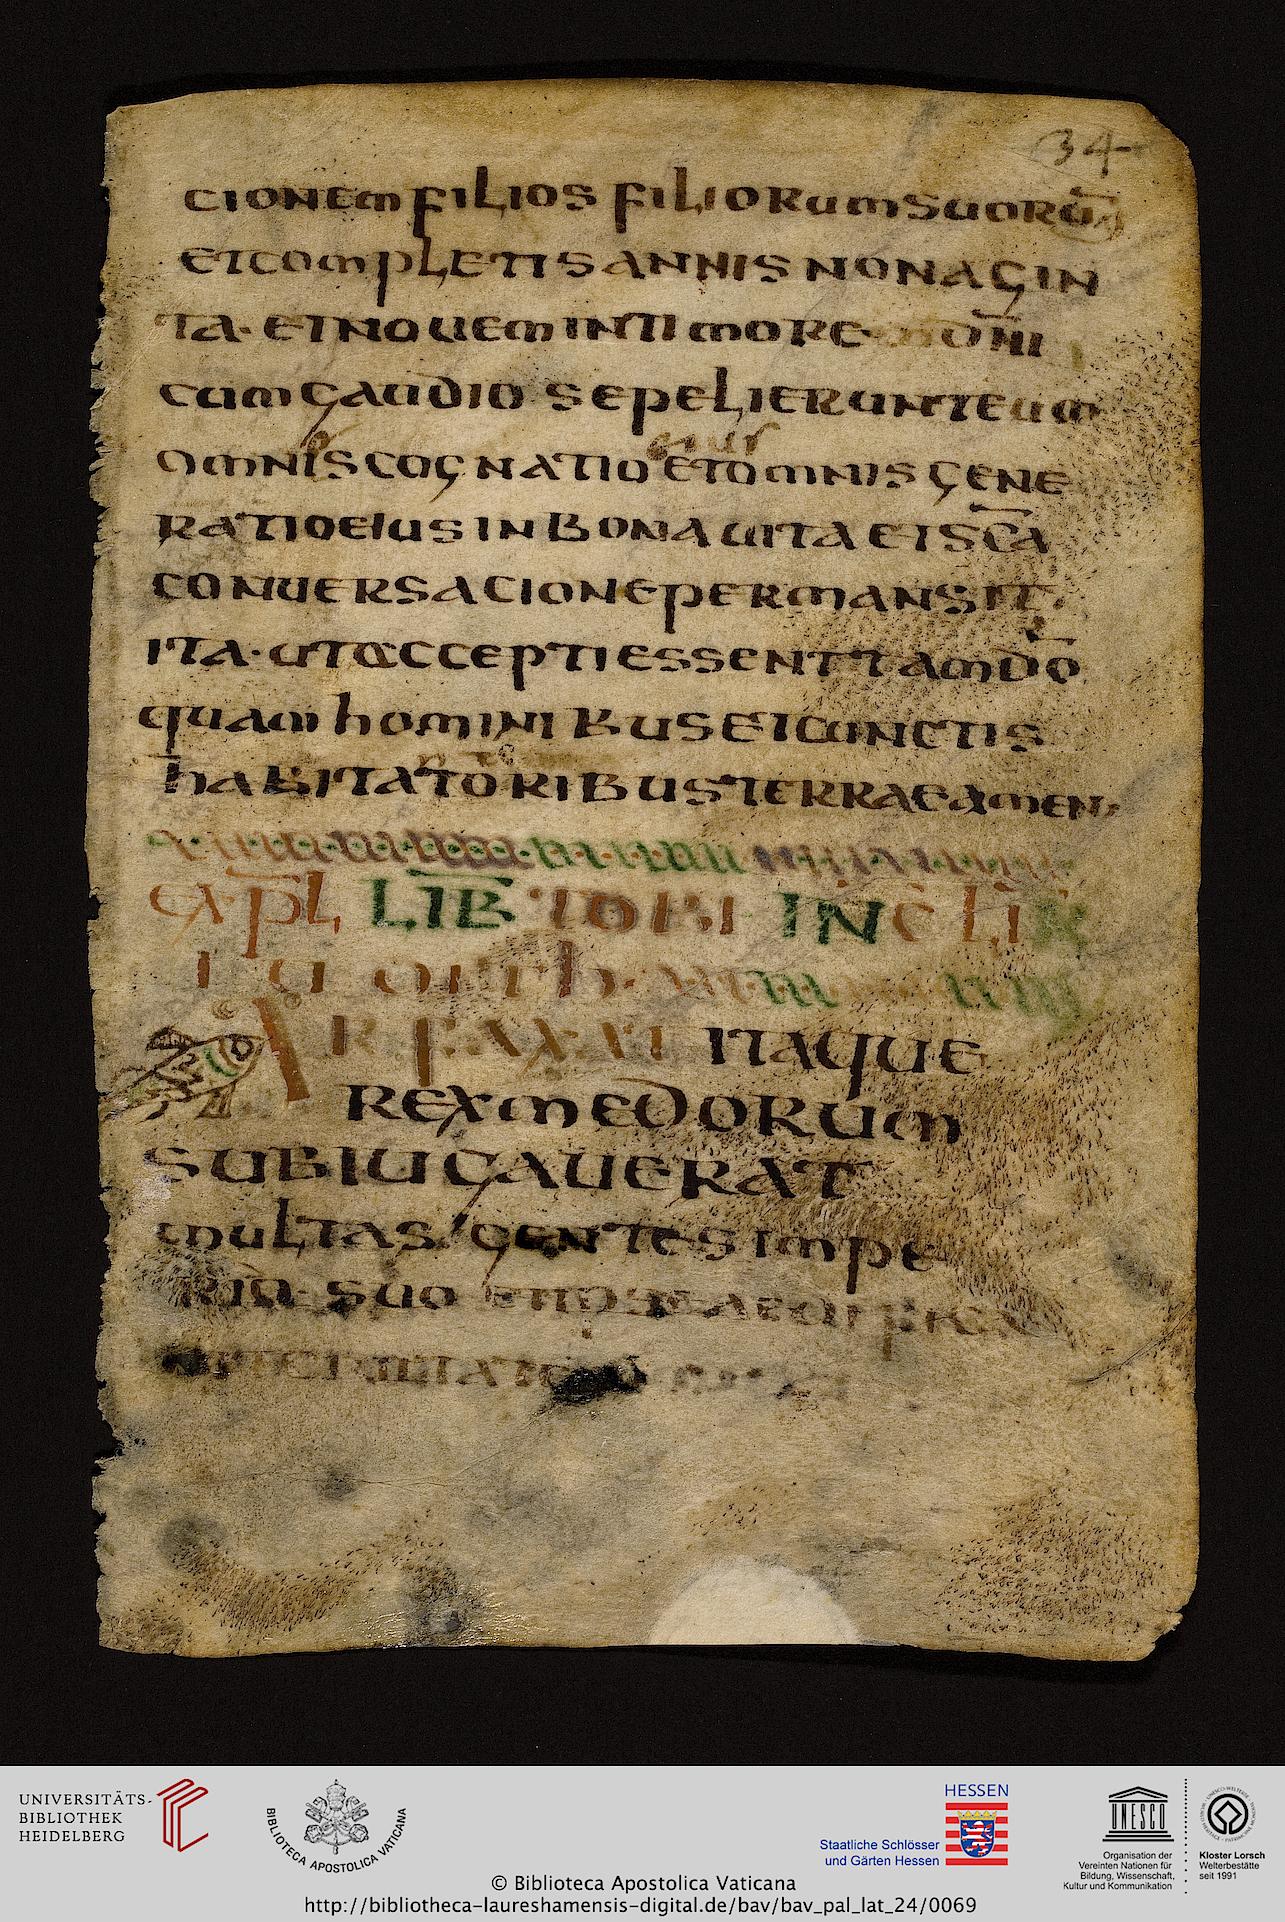 34
cionem filios filiorum suorū
et completis annis nonagin
ta. et nouem in timore dn̄i
cum gaudio sepelierunt eum
omnis cognatio eius et omnis gene
ratio eius in bona uita et sc̄a
conuersacione permansit.
ita. ut accepti essent tam dō
quam hominibus et cunctis
habitatoribus terrae amen.
expl lib tobi inc lib
iudith.
Arfaxat itaque
rex medorum
subiugauerat
multas gentes impe
rio suo et ipse aedifica
UNIVERSITÄTS-
BIBLIOTHEK
HEIDELBERG
BIBLIOTECA APOSTOLICA VATICANA
HESSEN
Staatliche Schlösser
und Gärten Hessen
UNESCO
Organisation der
Vereinten Nationen für
Bildung, Wissenschaft,
Kultur und Kommunikation
Kloster Lorsch
Welterbestätte
seit 1991
© Biblioteca Apostolica Vaticana
http://bibliotheca-laureshamensis-digital.de/bav/bav_pal_lat_24/0069